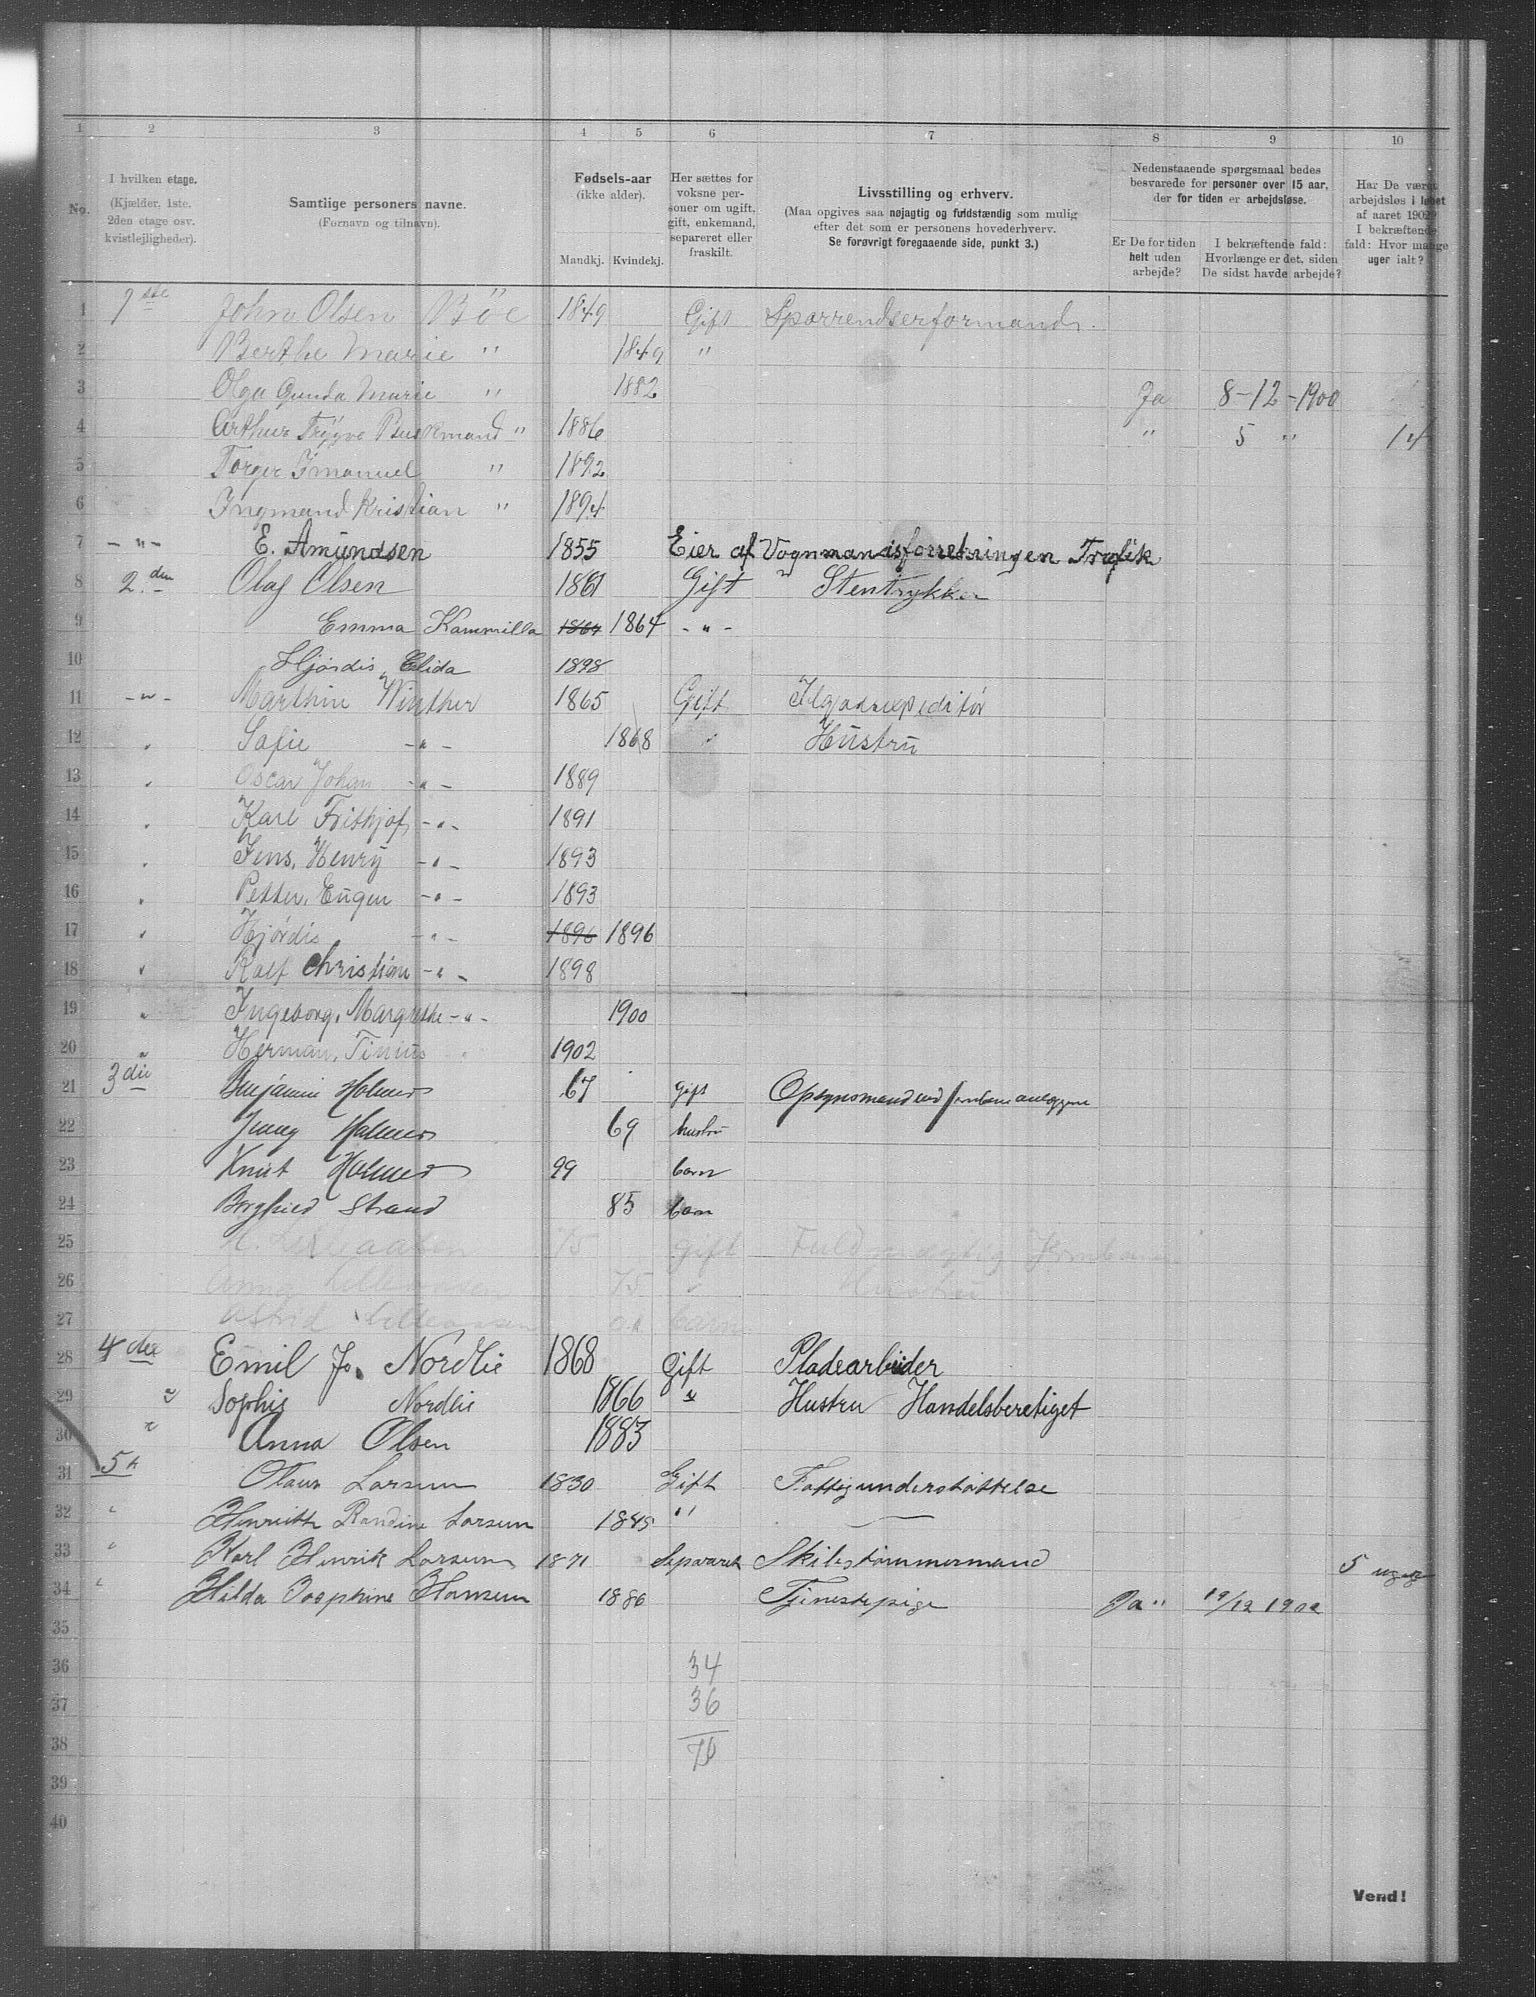 1 2 3 4 5 6 7 8 9 10
No.
I hvilken etage.
(Kjælder, 1ste,
2den etage osv.
kvistlejligheder).
Samtlige personers navne.
(Fornavn og tilnavn).
Fødsels-aar
(ikke alder).
Mandkj. Kvindekj.
Her sættes for
voksne per-
soner om ugift,
gift, enkemand,
separeret eller
fraskilt.
Livsstilling og erhverv.
(Maa opgives saa nøjagtig og fuldstændig som mulig
efter det som er personens hovederhverv.
Se forøvrigt foregaaende side, punkt 3.)
Nedenstaaende spørgsmaal bedes
besvarede for personer over 15 aar,
der for tiden er arbejdsløse.
Er De for tiden
helt uden
arbejde?
I bekræftende fald:
Hvorlænge er det, siden
De sidst havde arbejde?
Har De været
arbejdsløs i løbet
af aaret 1902?
I bekræftende
fald: Hvor mange
uger ialt?
1 1ste John Olsen Böe 1849 Gift
2 Berthe Marie " 1849 "
3 Olga Gunda Marie " 1882 Ja 8-12-1900
4 Arthur Trygve " 1886 " 5 " 14
5 Torger Imanuel " 1892
6 Ingmand Kristian " 1894
7 - " - E. Amundsen 1855 Eier af Vognmandsforretningen Trafik
8 2.den Olaf Olsen 1861 Gift Stentrykker
9 Emma Kammilla 1864 1864 - " -
10 Hjördis Elida 1898
11 - " - Marthin Winther 1865 Gift
12 " Sofie - " - 1868 " Hustru
13 " Oscar Johan - " - 1889
14 " Karl Frithjof - " - 1891
15 " Jens, Henry - " - 1893
16 " Petter, Eugen - " - 1893
17 " Hjördis - " - 1896 1896
18 " Rolf Christian - " - 1898
19 " Ingeborg, Margrethe - " - 1900
20 " Herman, Tinius " 1902
21 3die Benjamin Holmer 67 Gift
22 Jenny Holmer 69 hustru
23 Knut Holmer 99 barn
24 Borghild Strand 85 barn
25 75 gift
26 Anna 75 " Hustru
27 Astrid barn
28 4de Emil J. Nordlie 1868 Gift Pladearbeider
29 " Sophie Nordlie 1866 " Hustru Handelsberetiget
30 " Anna Olsen 1883
31 5te Olaus Larsen 1830 Gift Fattigunderstøttelse
32 " Randine Larsen 1845 "
33 " Karl Henrik Larsen 1871 Separeret Skibstømmermand 5 uger
34 " Hilda Josephine Hansen 1886 Tjenestepige Ja " 19/12 1902
35
36 34
37 36
38 70
39
40
Vend!